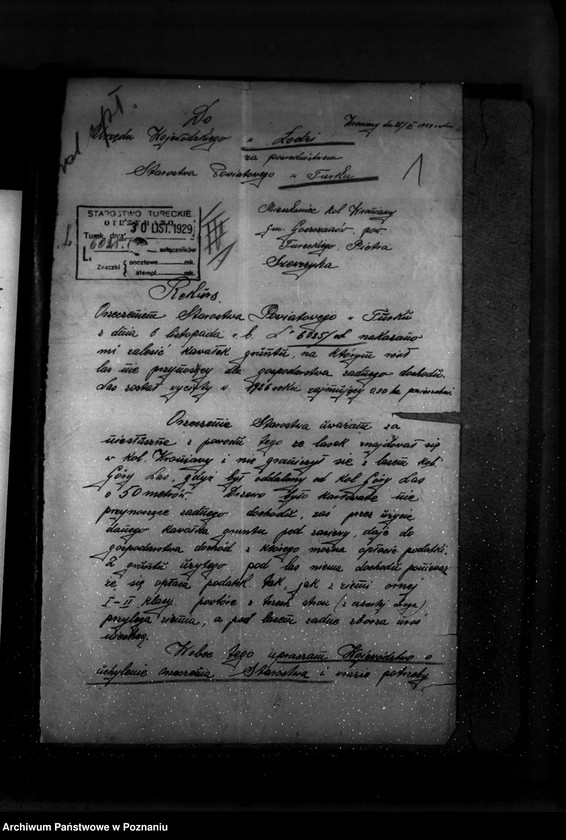 Do
Urzędu Wojewódzkiego w Łodzi
za pośrednictwem
Starostwa Powiatowego w Turku
1
STAROSTWO TURECKIE
Turek, dnia 30 LIST. 1929
L. 6025
załączników
Znaczki pocztowe mk.
stempl. mk.
Mieszkańca kol. Wroniawy
gm. Goszczanów pow.
Tureckiego Piotra
Szewczyka
Rekurs.
Orzeczeniem Starostwa Powiatowego w Turku
z dnia 6 listopada r. b. L. 6025/ nakazano
mi zalesić kawałek gruntu, na którym rósł
las nie przynoszący dla gospodarstwa żadnego dochodu.
Las został wycięty w 1926 roku zajmujący 0.20 ha
Orzeczenie Starostwa uważam za
niesłuszne z powodu tego że lasek znajdował się
w kol. Wroniawy i nie graniczył się z lasem kol.
Góry Las, gdyż był oddalony od kol. Góry Las
o 50 metrów. Drzewo było karłowate nie
przynoszące żadnego dochodu, zaś przez użycie
danego kawałka gruntu pod zasiewy, daje do
gospodarstwa dochód z którego można opłacić podatki.
Z gruntu użytego pod las niema dochodu ponieważ
że się opłaca podatek tak jak z ziemi ornej
I-II klasy, powtóre z trzech stron
przylega ziemia, a pod lasem żadne zboża
Wobec tego upraszam Województwo o
uchylenie orzeczenia Starostwa i w razie potrzeby
Archiwum Państwowe w Poznaniu